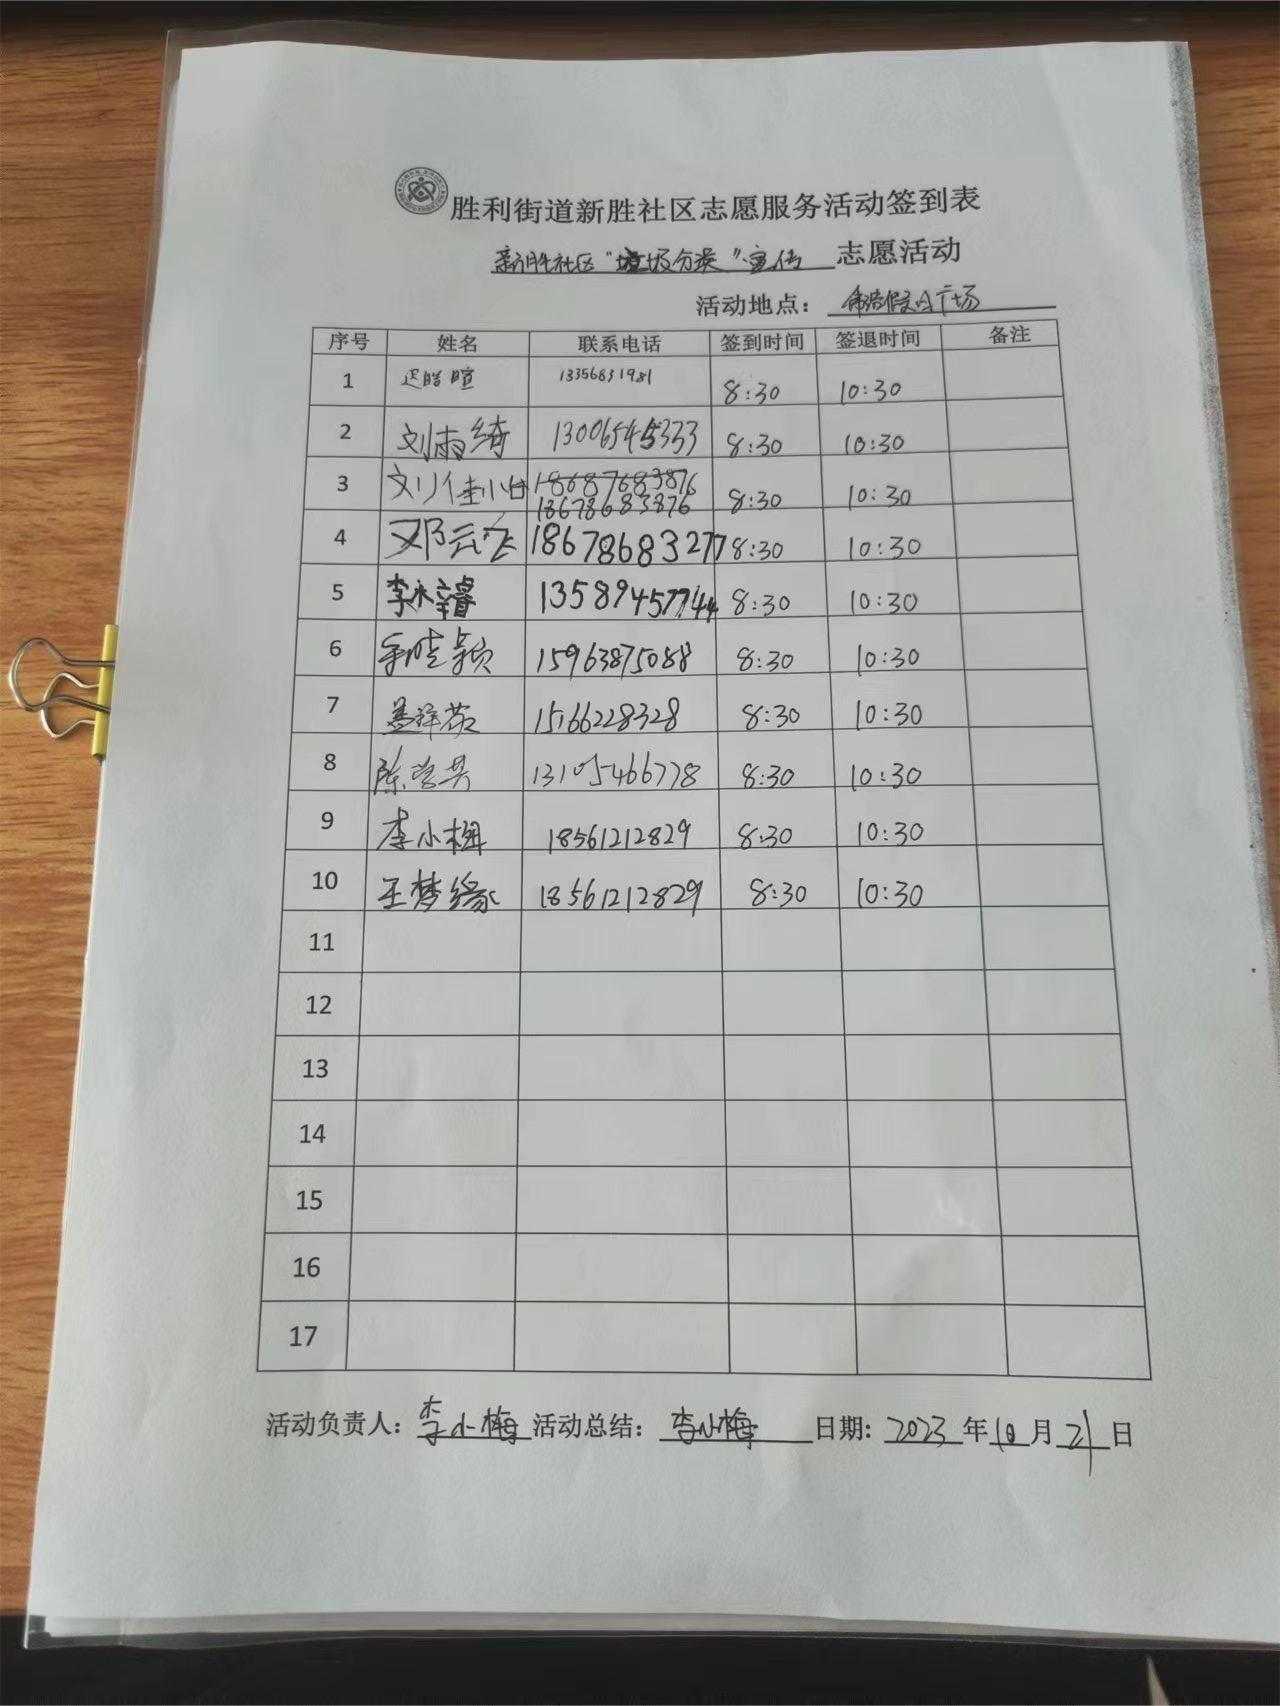 胜利街道新胜社区志愿服务活动签到表
新胜社区“垃圾分类”宣传 志愿活动
活动地点： 假日广场
序号 姓名 联系电话 签到时间 签退时间 备注
1 迟皓暄 13356831981 8:30 10:30
2 刘雨绮 13006545333 8:30 10:30
3 刘佳 18687683876 8:30 10:30
18678683876
4 邓云飞 18678683277 8:30 10:30
5 李梓睿 13589457744 8:30 10:30
6 晓颖 15963875088 8:30 10:30
7 15166228328 8:30 10:30
8 陈 13105466778 8:30 10:30
9 李小梅 18561212829 8:30 10:30
10 王梦缘 18561212829 8:30 10:30
11
12
13
14
15
16
17
活动负责人：李小梅 活动总结：李小梅 日期：2023年10月21日